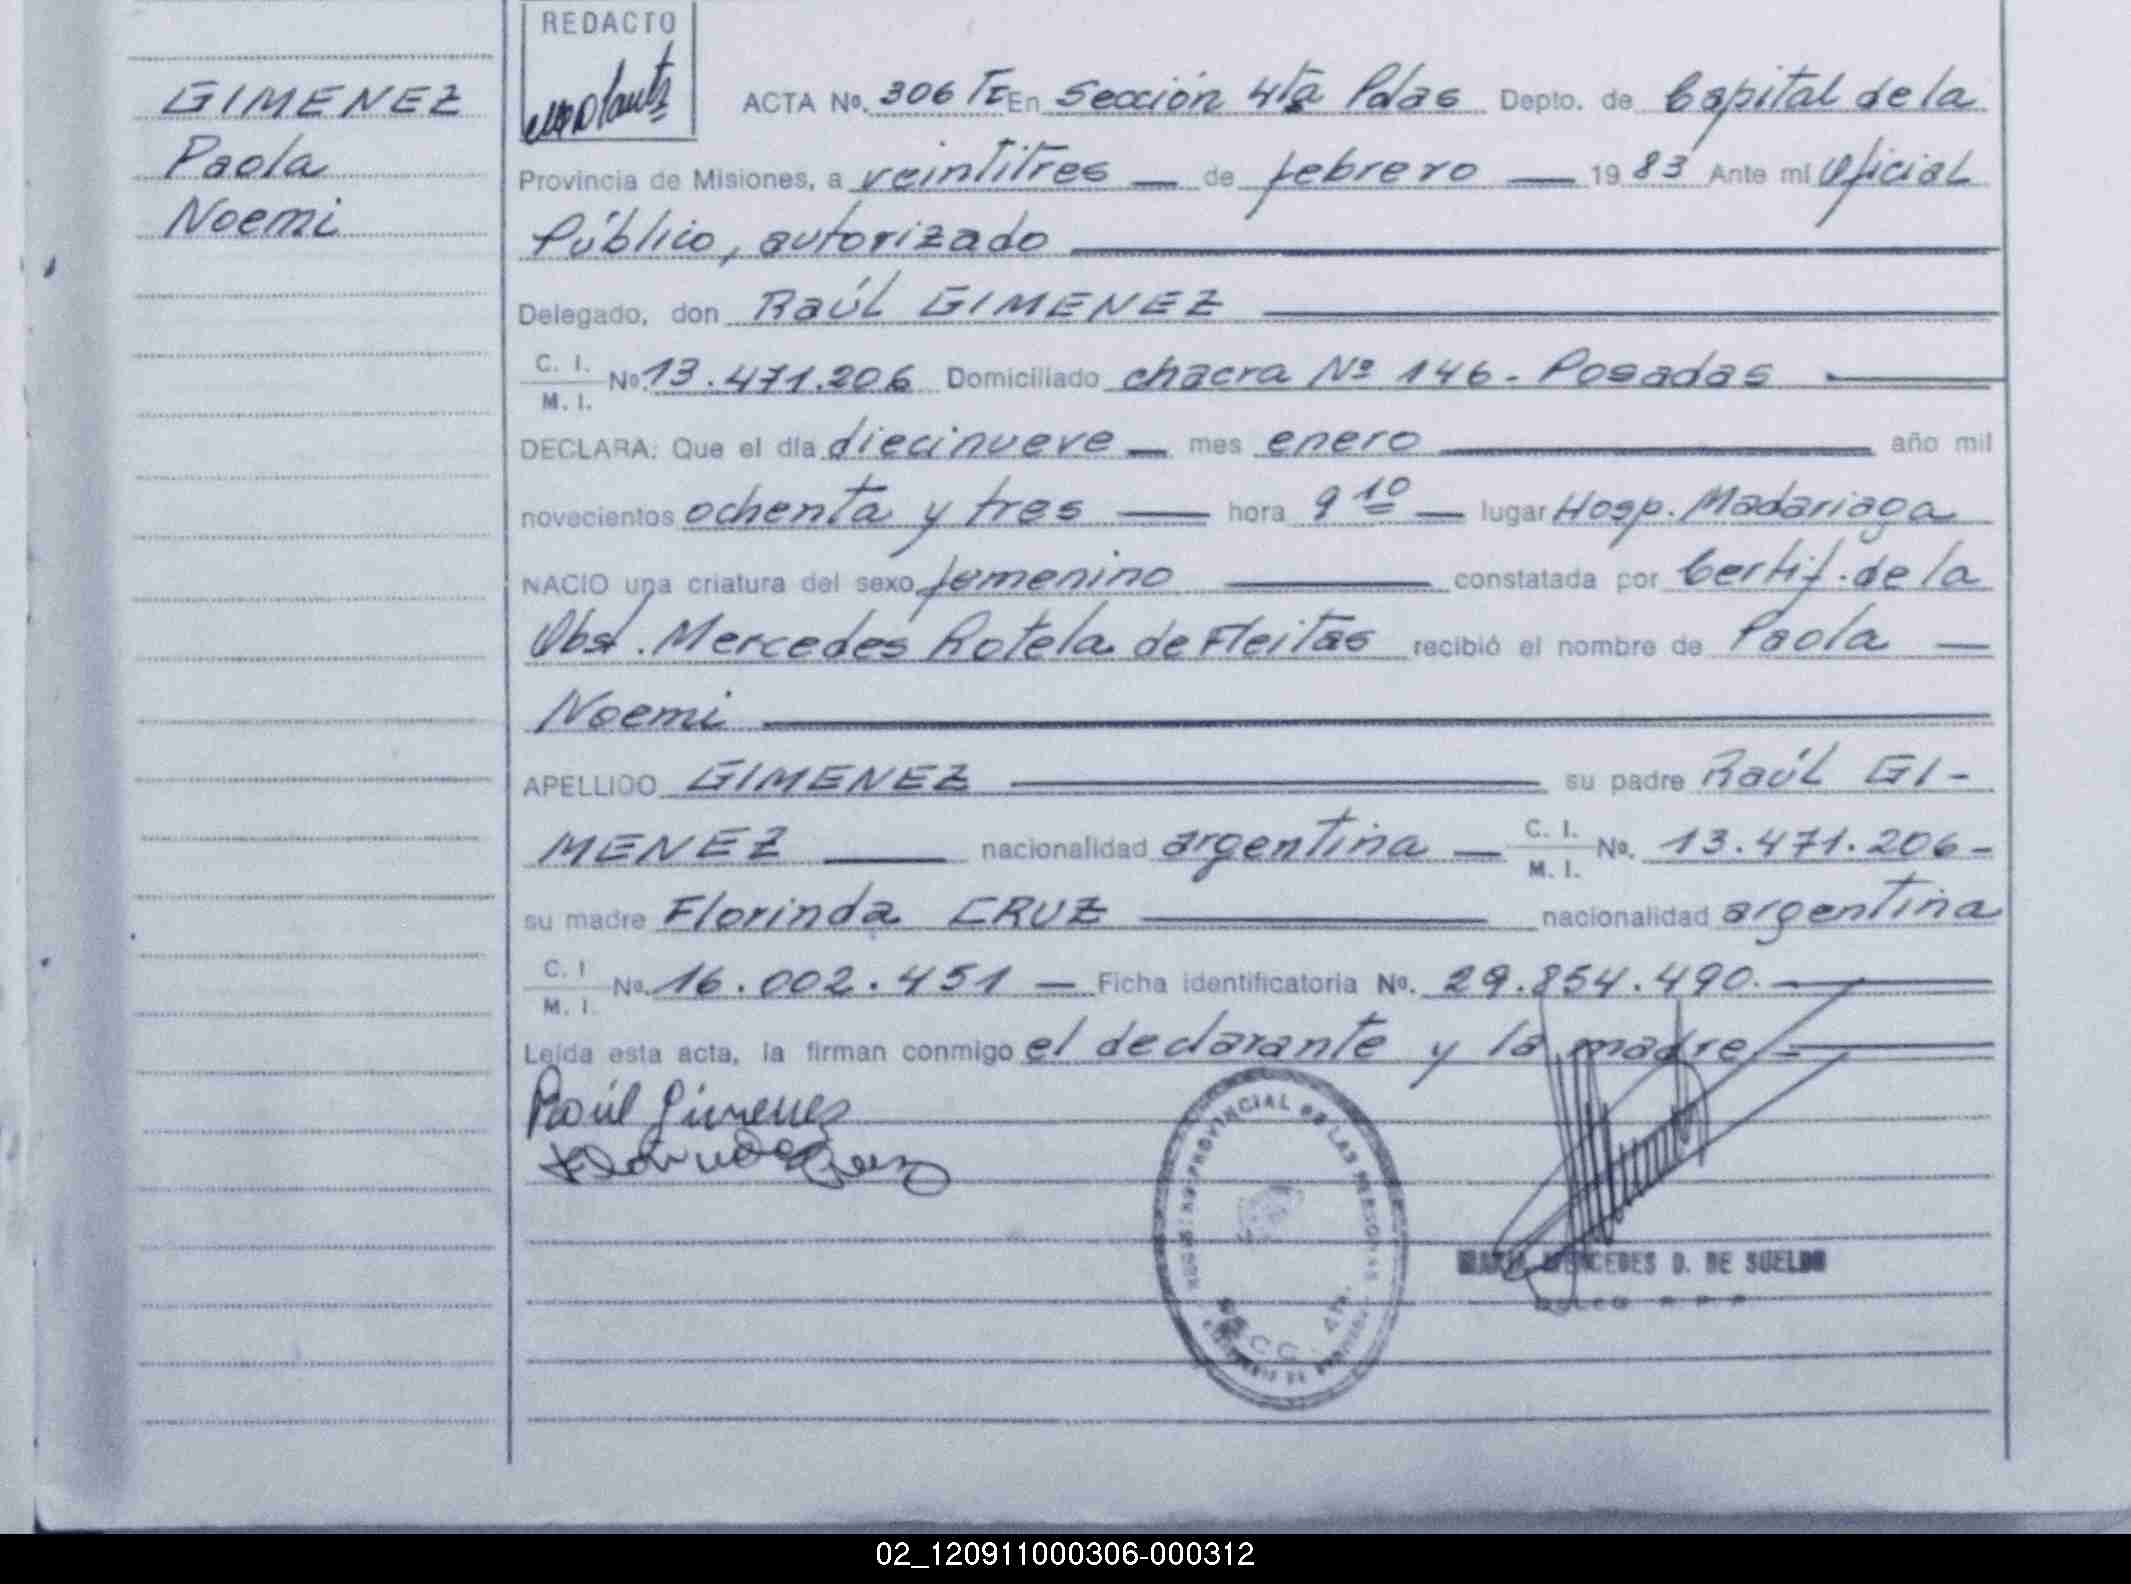 GIMENEZ
Paola
Noemi
REDACTO
ACTA No. 306 TI En Sección 4ta Pdas Depto. de Capital de la
Provincia de Misiones, a veintitres — de febrero — 1983 Ante mí Oficial
Público, autorizado
Delegado, don Raúl GIMENEZ
C. I.
M. I. No. 13.471.206 Domiciliado chacra Nº 146 - Posadas
DECLARA: Que el día diecinueve — mes enero — año mil
novecientos ochenta y tres — hora 9 10 — lugar Hosp. Madariaga
NACIO una criatura del sexo femenino — constatada por Certif. de la
Obst. Mercedes Rotela de Fleitas recibió el nombre de Paola —
Noemi
APELLIDO GIMENEZ — su padre Raúl GI-
MENEZ — nacionalidad argentina — C. I. M. I. No. 13.471.206 -
su madre Florinda CRUZ — nacionalidad argentina
C. I. M. I. No. 16.002.451 — Ficha identificatoria No. 29.854.490.
Leída esta acta, la firman conmigo el declarante y la madre -
Raúl Gimenez
Florinda Cruz
PROVINCIAL DE LAS PERSONAS
SECC. 4ta.
MARIA MERCEDES D. DE SUELDO
02_120911000306-000312